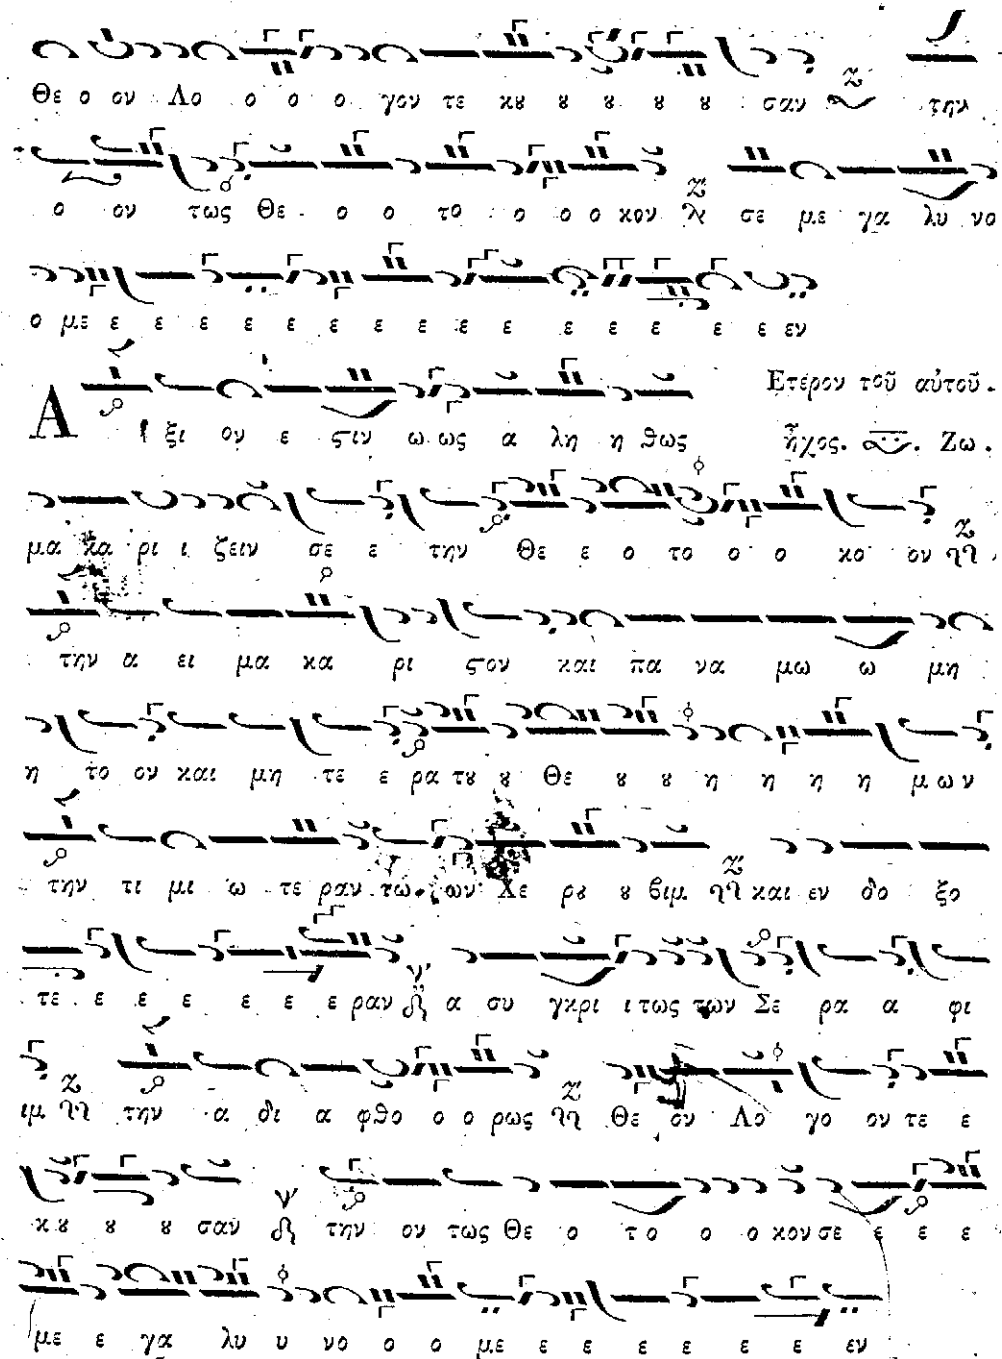 Θε ο ον Λο ο ο ο γον τε κȣ ȣ ȣ ȣ ȣ σαν την
ο ον τως Θε ο ο το ο ο ο κον σε με γα λυ νο
ο με ε ε ε ε ε ε ε ε ε ε ε ε ε ε ε εν
Ετερον τοῦ αὐτοῦ.
Α ξι ον ε ϛιν ω ως α λη η θως ἦχος. Ζω.
μα κα ρι ι ζειν σε ε την Θε ε ο το ο ο κο ον
την α ει μα κα ρι ϛον και πα να μω ω μη
η το ον και μη τε ε ρα τȣ ȣ Θε ȣ ȣ η η η η μων
την τι μι ω τε ραν των Χε ρȣ ȣ βιμ και εν δο ξο
τε ε ε ε ε ε ε ραν α συ γκρι ι τως των Σε ρα α φι
ιμ την α δι α φθο ο ο ρως Θε ον Λο γο ον τε ε
κȣ ȣ ȣ σαν την ον τως Θε ο το ο ο κον σε ε ε ε
με ε γα λυ υ νο ο ο με ε ε ε ε ε ε εν